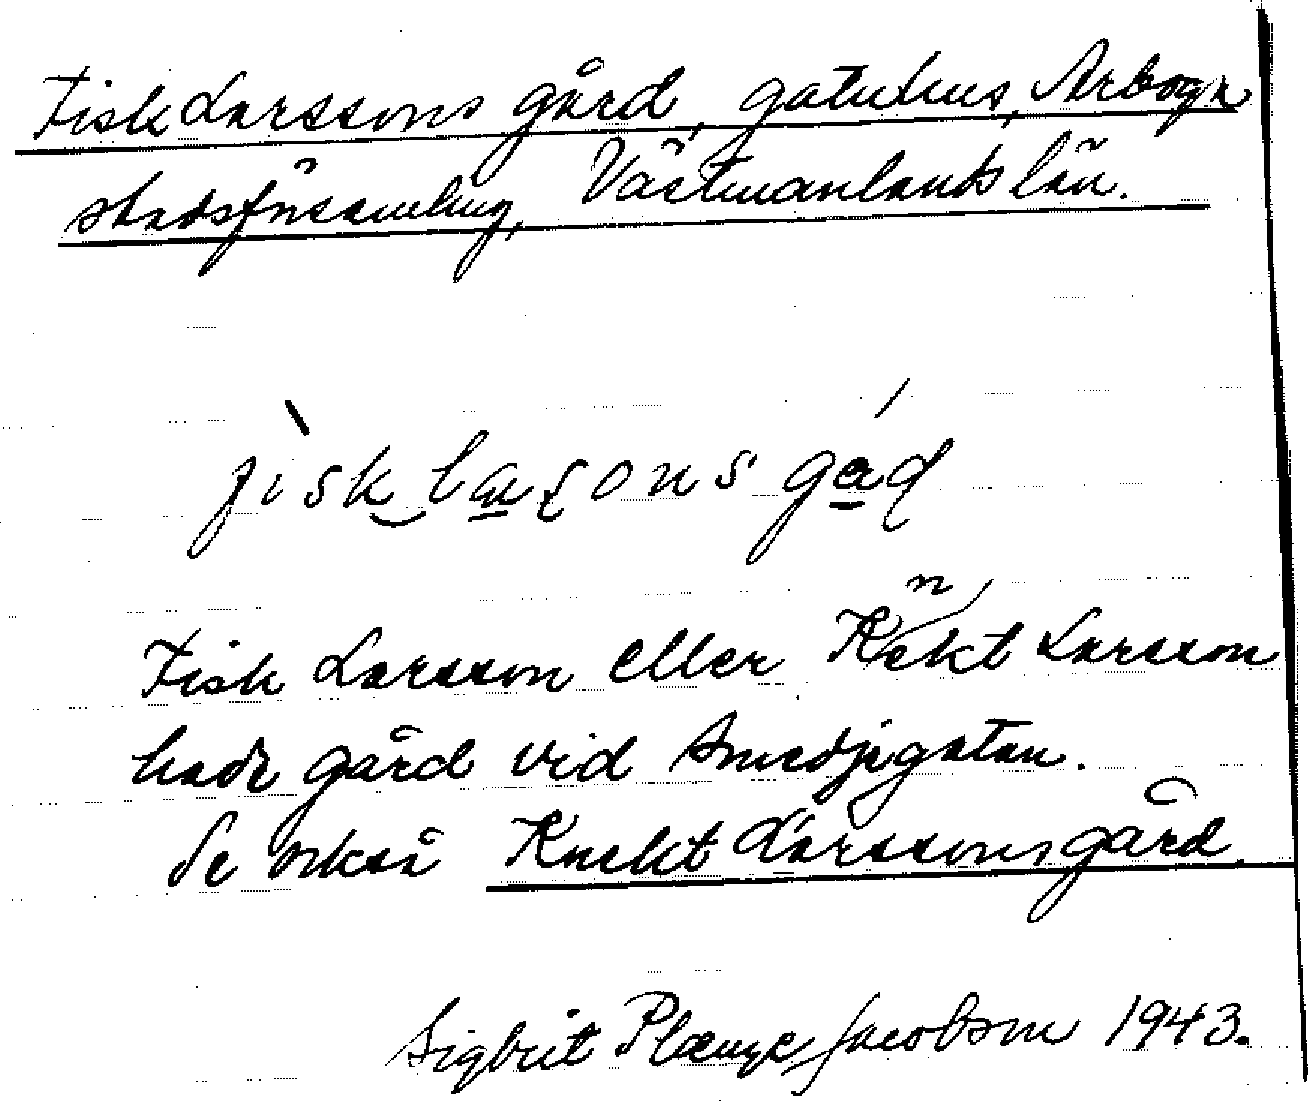 Fisk Larssons gård, gatuhus, Arboga
stadsförsamling, Västmanlands län.
fìsk laʂons gáɖ
Fisk Larsson eller Knekt Larsson
hade gård vid Smedjegatan.
Se också Knekt Larssons gård.
Sigbrit Plænge Jacobson 1943.